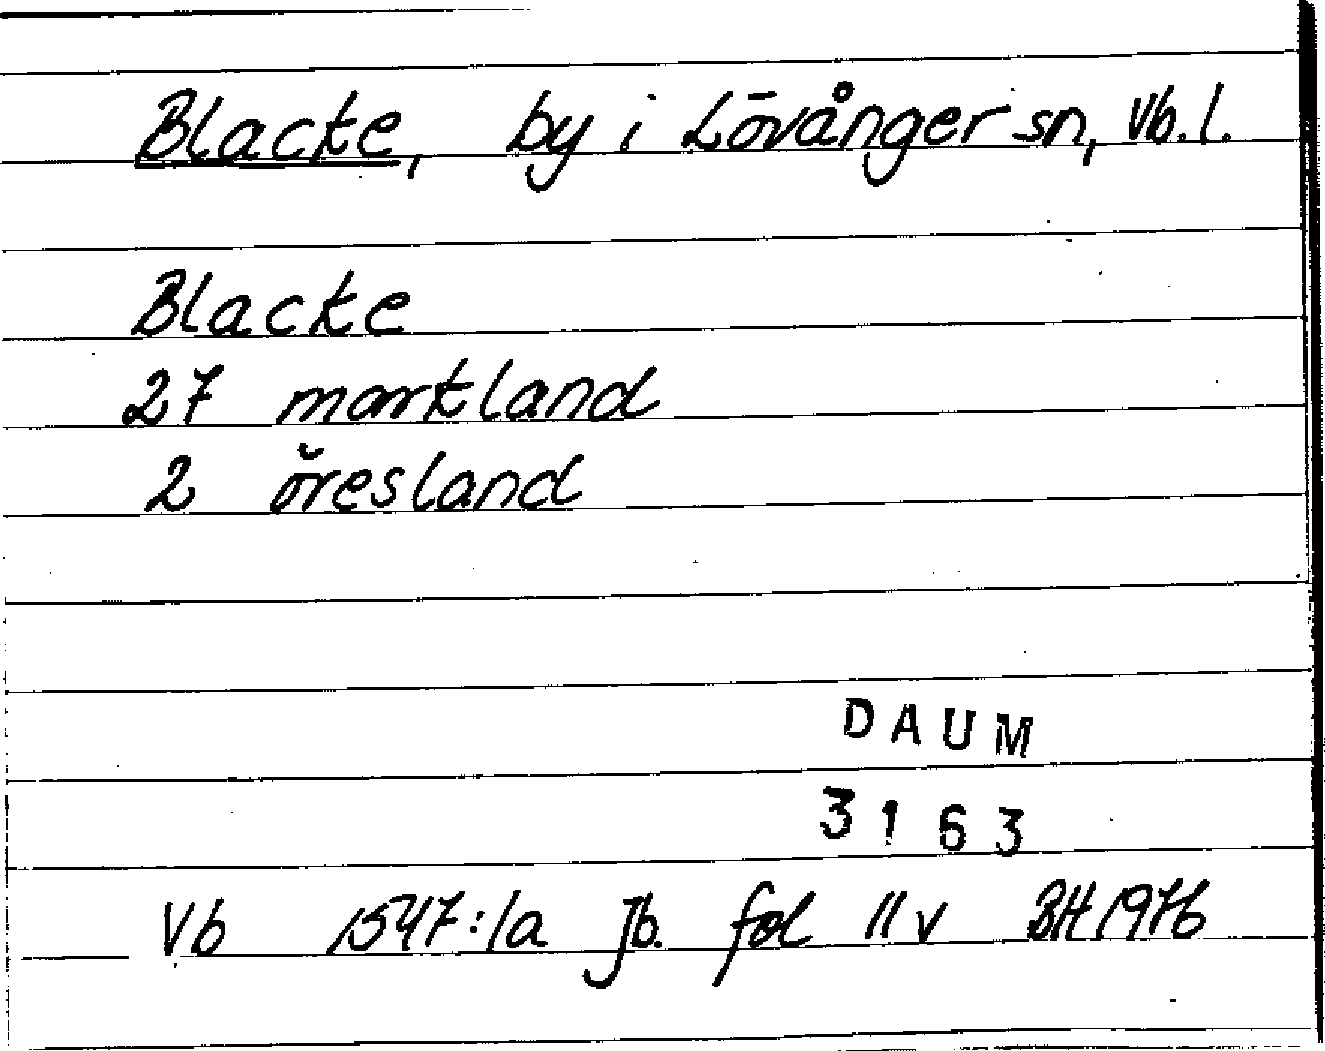 Blacke, by i Lövånger sn, Vb.l.
Blacke
27 markland
2 öresland
DAUM
3163
Vb 1547:1a Jb. fol 11 v BH 1976